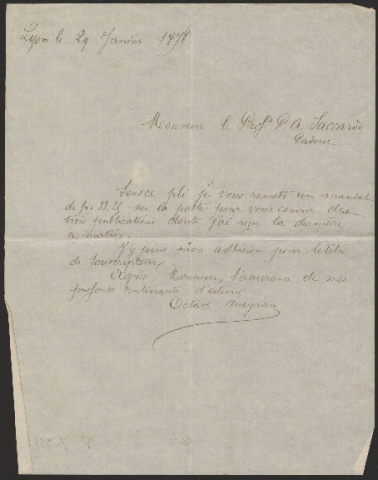 Lyon le 29 Janvier 1878
Monsieur le Prof. P. A. Saccardo
Padoue
Sous ce pli je vous remets un mandat
de frs 22.35 sur la poste pour vous couvrir des
trois publications dont j'ai reçu la dernière
ce matin.
J'y joins mon adhésion pour
de souscription.
Agréez Monsieur, l'assurance de mes
profonds sentiments d'estime
Octave Meyran